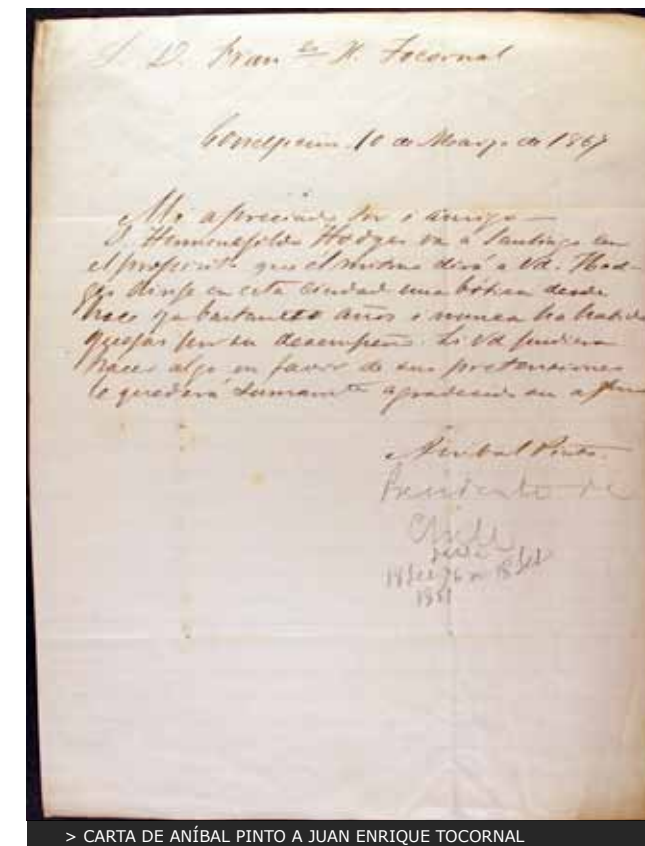 S. D. Fran.co J. Tocornal
Concepcion 10 de Marzo de 1867
Mi apreciado Sor i amigo —
D. Hermenegildo Hodges va a Santiago con
el proposito que el mismo dirá a Vd. Hod-
ges dirije en esta Ciudad una botica desde
hace ya bastantes años i nunca ha habido
quejas por su desempeño. Si Vd pudiera
hacer algo en favor de sus pretensiones
le quedará sumamte agradecido su
Anibal Pinto
Presidente de
Chile
> CARTA DE ANÍBAL PINTO A JUAN ENRIQUE TOCORNAL